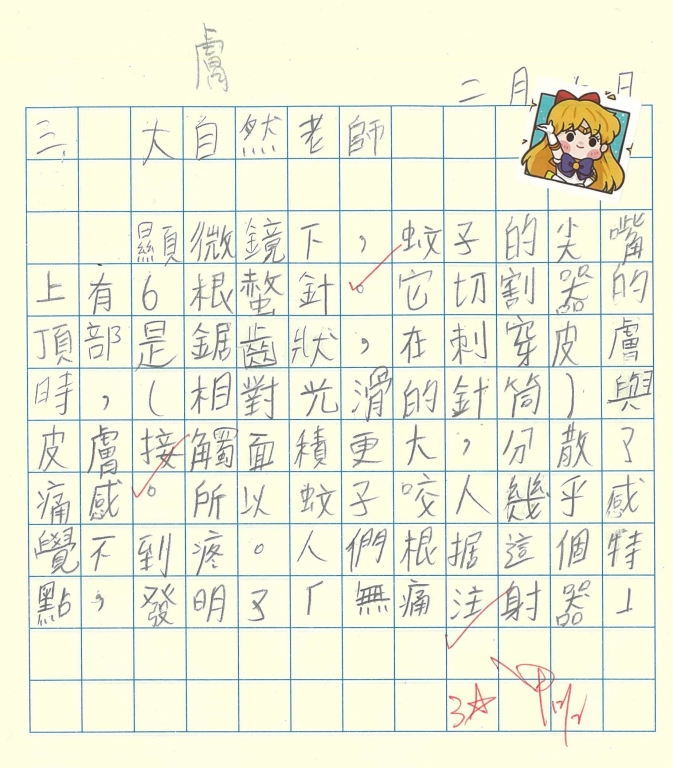 膚
二月 日
三、大自然老師
顯微鏡下，蚊子的尖嘴
上有6根螫針。它切割器的
頂部是鋸齒狀，在刺穿皮膚
時，(相對光滑的針筒)與
皮膚接觸面積更大，分散了
痛感。所以蚊子咬人幾乎感
覺不到疼。人們根据這個特
點，發明了「無痛注射器」
3☆